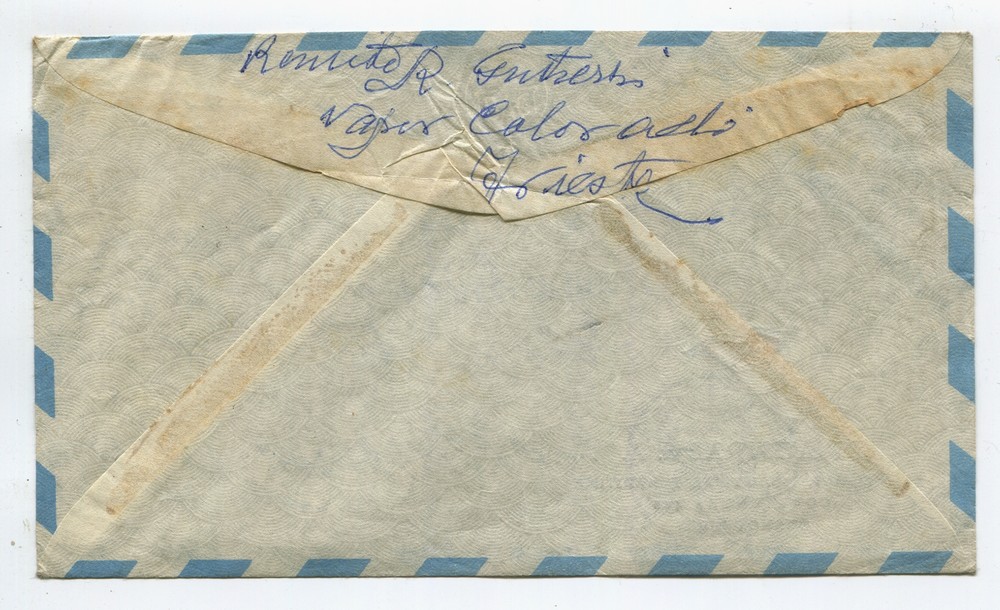 Remite R Gutierrez
Vapor Colorado
Trieste